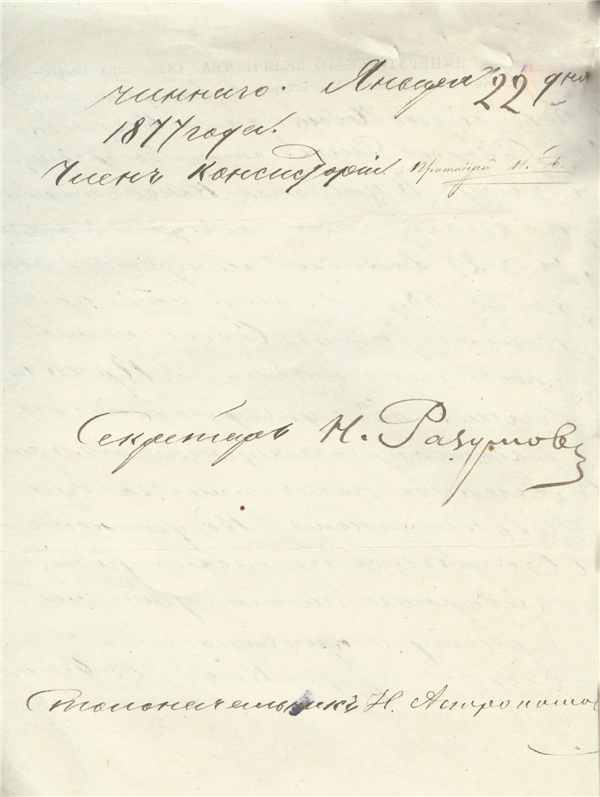 чиннаго. Января 22 дня
1877 года.
Членъ Консисторіи Протоіерей
Секретарь Н. Разумовъ
Столоначальникъ Н.